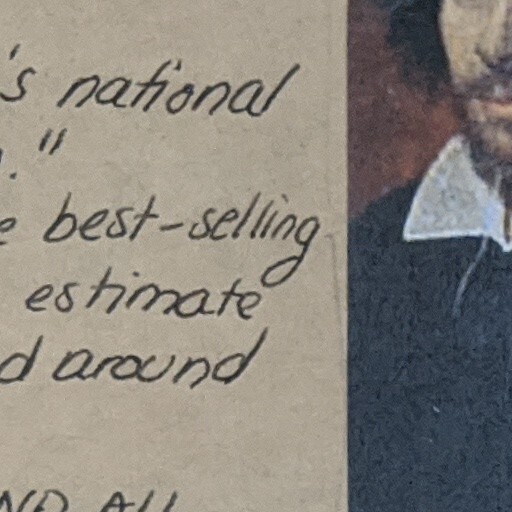 's national
."
best-selling
estimate
d around
ND All